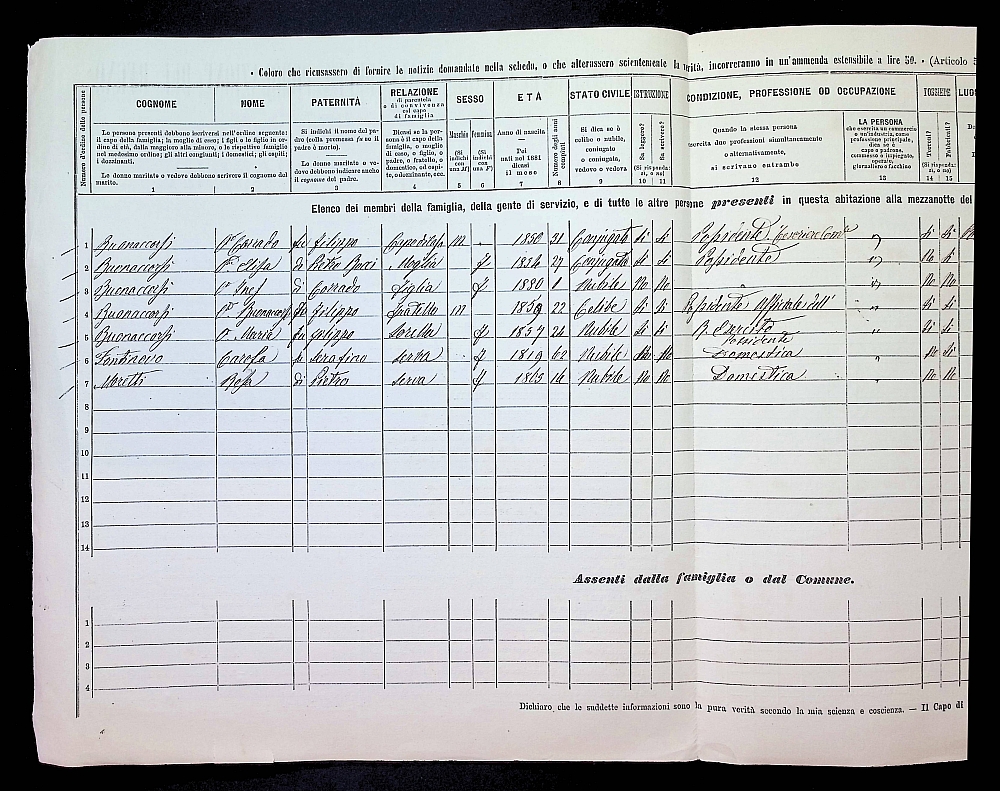 • Coloro che ricusassero di fornire le notizie domandate nella scheda, o che alterassero scientemente la verità, incorreranno in un'ammenda estensibile a lire 50. - (Articolo
Numero d'ordine delle persone COGNOME NOME PATERNITÀ RELAZIONE di parentela o di convivenza col capo di famiglia SESSO ETÀ STATO CIVILE ISTRUZIONE CONDIZIONE, PROFESSIONE OD OCCUPAZIONE POSSIEDE LUO
Le persone presenti debbono iscriversi nell'ordine seguente: il capo della famiglia; la moglie di esso; i figli e le figlie in ordine di età, dalla maggiore alla minore, e le rispettive famiglie nel medesimo ordine; gli altri congiunti; i domestici; gli ospiti; i dozzinanti.
Le donne maritate o vedove debbono scrivere il cognome del marito.
Si indichi il nome del padre (colla premessa fu se il padre è morto).
Le donne maritate o vedove debbono indicare anche il cognome del padre.
Dicasi se la persona è il capo della famiglia, o moglie di esso, o figlio, o padre, o fratello, o domestico, od ospite, o dozzinante, ecc.
Maschio (Si indichi con una M)
Femmina (Si indichi con una F)
Anno di nascita — Pei nati nel 1881 dicasi il mese
Numero degli anni compiuti
Si dica se è celibe o nubile, coniugato o coniugata, vedovo o vedova
Sa leggere? Sa scrivere? (Si risponda: sì, o no)
Quando la stessa persona esercita due professioni simultaneamente o alternativamente, si scrivano entrambe
LA PERSONA che esercita un commercio o un'industria, come professione principale, dica se è capo o padrone, commesso o impiegato, operaio, giornaliero o facchino
Terreni? Fabbricati? (Si risponda: sì, o no)
1 2 3 4 5 6 7 8 9 10 11 12 13 14 15
Elenco dei membri della famiglia, della gente di servizio, e di tutte le altre persone presenti in questa abitazione alla mezzanotte del
1 Buonaccorsi Corrado fu Filippo Capo di casa M 1850 31 Conjugato Si Si Possidente " Si Si
2 Buonaccorsi Elisa di Pietro Moglie f 1854 27 Conjugata Si Si Possidente " No Si
3 Buonaccorsi Ines di Corrado figlia f 1880 1 Nubile No No " " No No
4 Buonaccorsi Buonaccorso fu Filippo fratello M 1859 22 Celibe Si Si Possidente Ufficiale dell' " Si Si
5 Buonaccorsi Maria fu Filippo Sorella f 1857 24 Nubile Si Si R. Esercito Possidente " Si Si
6 Carola di Serafino Serva f 1819 62 Nubile No No Domestica " No Si
7 Moretti Rosa di Pietro Serva f 1865 16 Nubile No No Domestica " No No
8
9
10
11
12
13
14
Assenti dalla famiglia o dal Comune.
1
2
3
4
Dichiaro che le suddette informazioni sono la pura verità secondo la mia scienza e coscienza. — Il Capo di